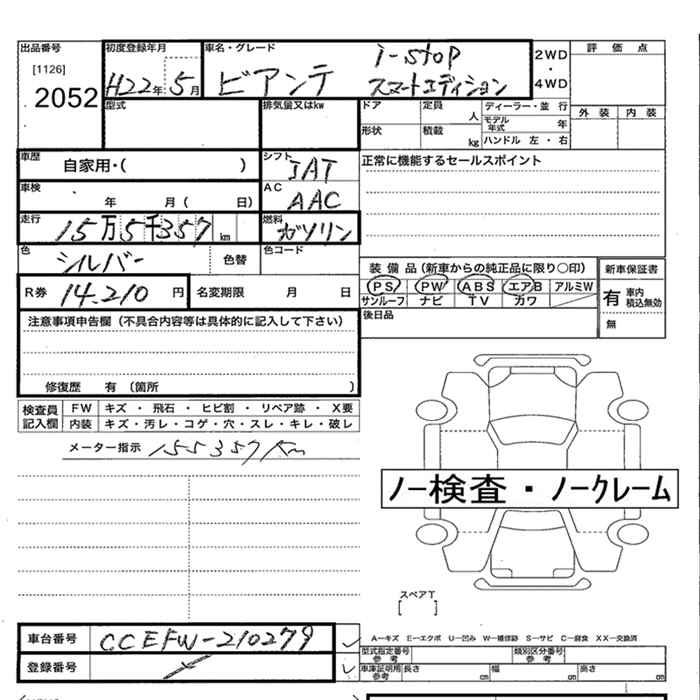 出品番号
[1126]
2052
初度登録年月
H22年 5月
車名・グレード
ビアンテ
i-stop
スマートエディション
2WD
・
4WD
評価点
外装 内装
型式
排気量又はkw
ドア
定員
人
形状
積載
kg
ディーラー・並 行
モデル年式 年
ハンドル 左・右
車歴
自家用・( )
シフト
IAT
正常に機能するセールスポイント
車検
年 月( 日)
AC
AAC
走行
15万5千357km
燃料
ガソリン
色
シルバー
色替
色コード
R券 14.210 円
名変期限 月 日
装備品(新車からの純正品に限り○印)
PS PW ABS エアB アルミW
サンルーフ ナビ TV カワ
新車保証書
有 車内積込無効
無
後日品
注意事項申告欄(不具合内容等は具体的に記入して下さい)
修復歴 有(箇所 )
検査員記入欄
FW キズ・飛石・ヒビ割・リペア跡・X要
内装 キズ・汚レ・コゲ・穴・スレ・キレ・破レ
メーター指示 155357Km
ノー検査・ノークレーム
スペアT
[ ]
車台番号 CCEFW-210279
登録番号
A—キズ E—エクボ U—凹み W—補修跡 S—サビ C—腐食 XX—交換済
型式指定番号 参考
類別区分番号 参考
車庫証明用 参考
長さ cm
幅 cm
高さ cm